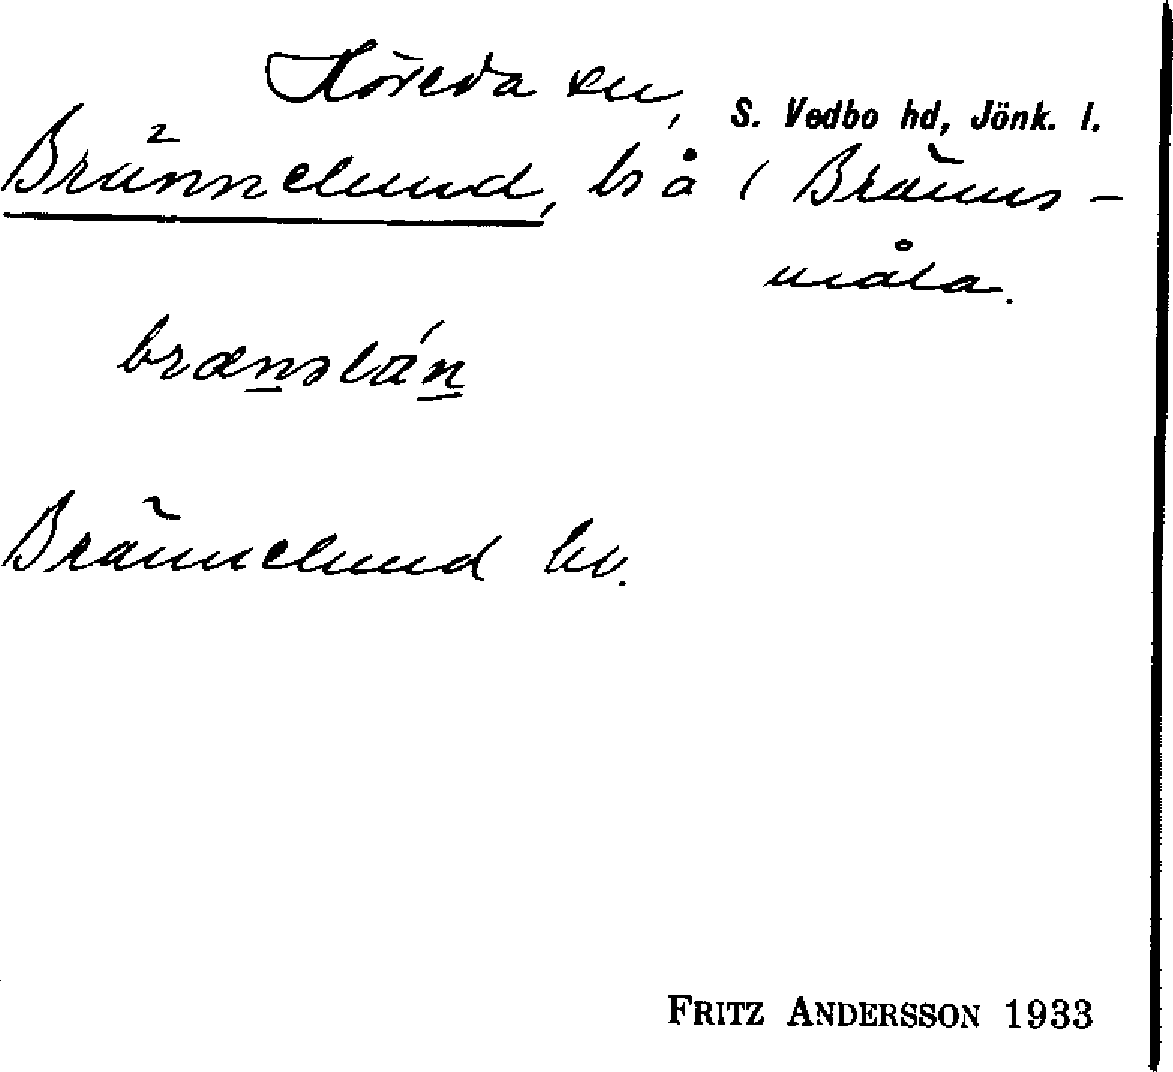 Höreda sn, S. Vedbo hd, Jönk. l.
Brännelund, ls å / Bränns-
måla.
Brännelund hv.
FRITZ ANDERSSON 1933